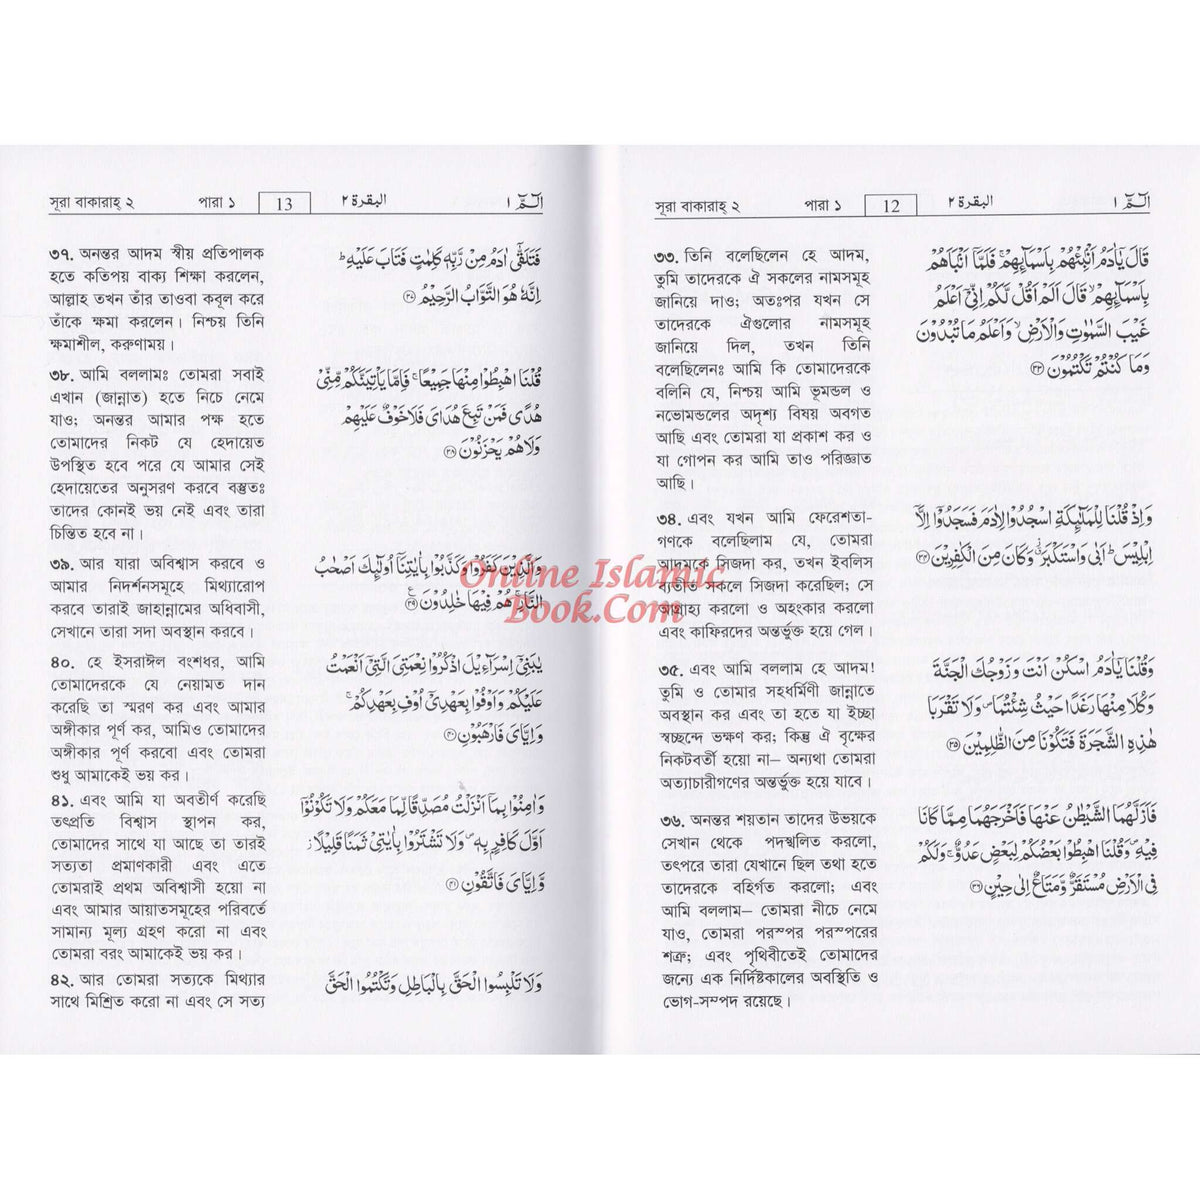 সূরা বাকারাহ্ ২ পারা ১ 12 البقرة ٢ الٓمّٓ ١
৩৩. তিনি বলেছিলেন হে আদম,
তুমি তাদেরকে ঐ সকলের নামসমূহ
জানিয়ে দাও; অতঃপর যখন সে
তাদেরকে ঐগুলোর নামসমূহ
জানিয়ে দিল, তখন তিনি
বলেছিলেনঃ আমি কি তোমাদেরকে
বলিনি যে, নিশ্চয় আমি ভূমন্ডল ও
নভোমন্ডলের অদৃশ্য বিষয় অবগত
আছি এবং তোমরা যা প্রকাশ কর ও
যা গোপন কর আমি তাও পরিজ্ঞাত
আছি।
قَالَ يٰٓاٰدَمُ اَنْۢبِئْهُمْ بِاَسْمَآئِهِمْ ۚ فَلَمَّآ اَنْۢبَاَهُمْ
بِاَسْمَآئِهِمْ ۙ قَالَ اَلَمْ اَقُلْ لَّكُمْ اِنِّيْٓ اَعْلَمُ
غَيْبَ السَّمٰوٰتِ وَالْاَرْضِ ۙ وَاَعْلَمُ مَا تُبْدُوْنَ
وَمَا كُنْتُمْ تَكْتُمُوْنَ ﴿٣٣﴾
৩৪. এবং যখন আমি ফেরেশতা-
গণকে বলেছিলাম যে, তোমরা
আদমকে সিজদা কর, তখন ইবলিস
ব্যতীত সকলে সিজদা করেছিল; সে
অগ্রাহ্য করলো ও অহংকার করলো
এবং কাফিরদের অন্তর্ভুক্ত হয়ে গেল।
وَاِذْ قُلْنَا لِلْمَلٰٓئِكَةِ اسْجُدُوْا لِاٰدَمَ فَسَجَدُوْٓا اِلَّآ
اِبْلِيْسَ ؕ اَبٰى وَاسْتَكْبَرَ ۫ وَكَانَ مِنَ الْكٰفِرِيْنَ ﴿٣٤﴾
৩৫. এবং আমি বললাম হে আদম!
তুমি ও তোমার সহধর্মিণী জান্নাতে
অবস্থান কর এবং তা হতে যা ইচ্ছা
স্বচ্ছন্দে ভক্ষণ কর; কিন্তু ঐ বৃক্ষের
নিকটবর্তী হয়ো না– অন্যথা তোমরা
অত্যাচারীগণের অন্তর্ভুক্ত হয়ে যাবে।
وَقُلْنَا يٰٓاٰدَمُ اسْكُنْ اَنْتَ وَزَوْجُكَ الْجَنَّةَ
وَكُلَا مِنْهَا رَغَدًا حَيْثُ شِئْتُمَا ۪ وَلَا تَقْرَبَا
هٰذِهِ الشَّجَرَةَ فَتَكُوْنَا مِنَ الظّٰلِمِيْنَ ﴿٣٥﴾
৩৬. অনন্তর শয়তান তাদের উভয়কে
সেখান থেকে পদস্খলিত করলো,
তৎপরে তারা যেখানে ছিল তথা হতে
তাদেরকে বহির্গত করলো; এবং
আমি বললাম– তোমরা নীচে নেমে
যাও, তোমরা পরস্পর পরস্পরের
শত্রু; এবং পৃথিবীতেই তোমাদের
জন্যে এক নির্দিষ্টকালের অবস্থিতি ও
ভোগ-সম্পদ রয়েছে।
فَاَزَلَّهُمَا الشَّيْطٰنُ عَنْهَا فَاَخْرَجَهُمَا مِمَّا كَانَا
فِيْهِ ۪ وَقُلْنَا اهْبِطُوْا بَعْضُكُمْ لِبَعْضٍ عَدُوٌّ ۚ وَلَكُمْ
فِى الْاَرْضِ مُسْتَقَرٌّ وَّمَتَاعٌ اِلٰى حِيْنٍ ﴿٣٦﴾
সূরা বাকারাহ্ ২ পারা ১ 13 البقرة ٢ الٓمّٓ ١
৩৭. অনন্তর আদম স্বীয় প্রতিপালক
হতে কতিপয় বাক্য শিক্ষা করলেন,
আল্লাহ তখন তাঁর তাওবা কবূল করে
তাঁকে ক্ষমা করলেন। নিশ্চয় তিনি
ক্ষমাশীল, করুণাময়।
فَتَلَقّٰٓى اٰدَمُ مِنْ رَّبِّهٖ كَلِمٰتٍ فَتَابَ عَلَيْهِ ؕ
اِنَّهٗ هُوَ التَّوَّابُ الرَّحِيْمُ ﴿٣٧﴾
৩৮. আমি বললামঃ তোমরা সবাই
এখান (জান্নাত) হতে নিচে নেমে
যাও; অনন্তর আমার পক্ষ হতে
তোমাদের নিকট যে হেদায়েত
উপস্থিত হবে পরে যে আমার সেই
হেদায়েতের অনুসরণ করবে বস্তুতঃ
তাদের কোনই ভয় নেই এবং তারা
চিন্তিত হবে না।
قُلْنَا اهْبِطُوْا مِنْهَا جَمِيْعًا ۚ فَاِمَّا يَاْتِيَنَّكُمْ مِّنِّيْ
هُدًى فَمَنْ تَبِعَ هُدَايَ فَلَا خَوْفٌ عَلَيْهِمْ
وَلَا هُمْ يَحْزَنُوْنَ ﴿٣٨﴾
৩৯. আর যারা অবিশ্বাস করবে ও
আমার নিদর্শনসমূহে মিথ্যারোপ
করবে তারাই জাহান্নামের অধিবাসী,
সেখানে তারা সদা অবস্থান করবে।
وَالَّذِيْنَ كَفَرُوْا وَكَذَّبُوْا بِاٰيٰتِنَآ اُولٰٓئِكَ اَصْحٰبُ
النَّارِ ۚ هُمْ فِيْهَا خٰلِدُوْنَ ﴿٣٩﴾
৪০. হে ইসরাঈল বংশধর, আমি
তোমাদেরকে যে নেয়ামত দান
করেছি তা স্মরণ কর এবং আমার
অঙ্গীকার পূর্ণ কর, আমিও তোমাদের
অঙ্গীকার পূর্ণ করবো এবং তোমরা
শুধু আমাকেই ভয় কর।
يٰبَنِيْٓ اِسْرَآءِيْلَ اذْكُرُوْا نِعْمَتِيَ الَّتِيْٓ اَنْعَمْتُ
عَلَيْكُمْ وَاَوْفُوْا بِعَهْدِيْٓ اُوْفِ بِعَهْدِكُمْ ۚ
وَاِيَّايَ فَارْهَبُوْنِ ﴿٤٠﴾
৪১. এবং আমি যা অবতীর্ণ করেছি
তৎপ্রতি বিশ্বাস স্থাপন কর,
তোমাদের সাথে যা আছে তা তারই
সত্যতা প্রমাণকারী এবং এতে
তোমরাই প্রথম অবিশ্বাসী হয়ো না
এবং আমার আয়াতসমূহের পরিবর্তে
সামান্য মূল্য গ্রহণ করো না এবং
তোমরা বরং আমাকেই ভয় কর।
وَاٰمِنُوْا بِمَآ اَنْزَلْتُ مُصَدِّقًا لِّمَا مَعَكُمْ وَلَا تَكُوْنُوْٓا
اَوَّلَ كَافِرٍۢ بِهٖ ۪ وَلَا تَشْتَرُوْا بِاٰيٰتِيْ ثَمَنًا قَلِيْلًا ز
وَّاِيَّايَ فَاتَّقُوْنِ ﴿٤١﴾
৪২. আর তোমরা সত্যকে মিথ্যার
সাথে মিশ্রিত করো না এবং সে সত্য
وَلَا تَلْبِسُوا الْحَقَّ بِالْبَاطِلِ وَتَكْتُمُوا الْحَقَّ
Online Islamic
Book.Com